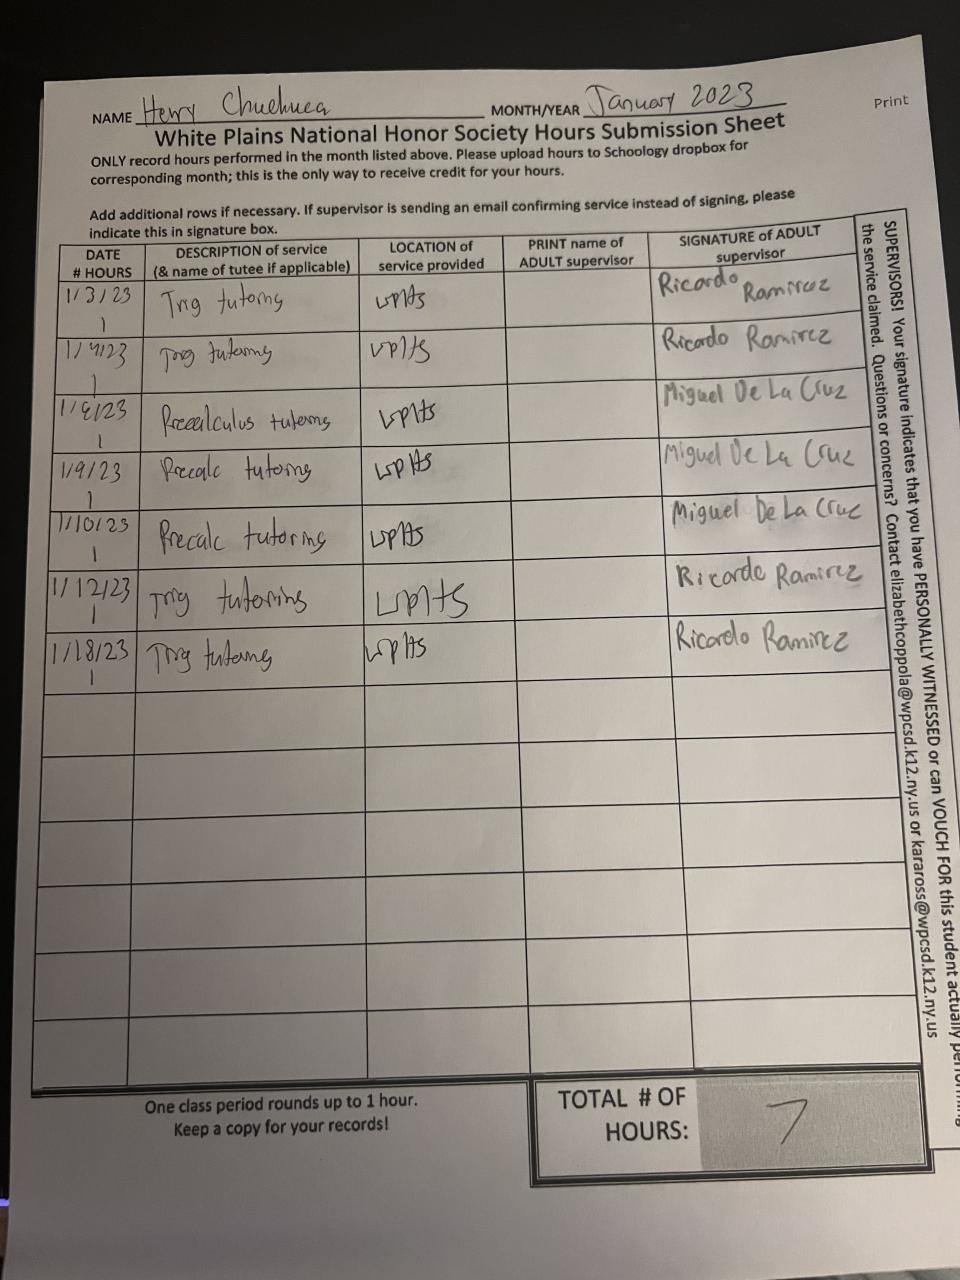 NAME Henry Chuchuca MONTH/YEAR January 2023
Print
White Plains National Honor Society Hours Submission Sheet
ONLY record hours performed in the month listed above. Please upload hours to Schoology dropbox for
corresponding month; this is the only way to receive credit for your hours.
Add additional rows if necessary. If supervisor is sending an email confirming service instead of signing, please
indicate this in signature box.
DATE # HOURS DESCRIPTION of service (& name of tutee if applicable) LOCATION of service provided PRINT name of ADULT supervisor SIGNATURE of ADULT supervisor
1/3/23 1 Trig tutoring WPHS Ricardo Ramirez
1/4/23 1 Trig tutoring WPHS Ricardo Ramirez
1 Precalculus tutoring WPHS Miguel De La Cruz
1/9/23 1 Precalc tutoring WPHS Miguel De La Cruz
1/10/23 1 Precalc tutoring WPHS Miguel De La Cruz
1/12/23 1 Trig tutoring WPHS Ricardo Ramirez
1/18/23 1 Trig tutoring WPHS Ricardo Ramirez
SUPERVISORS! Your signature indicates that you have PERSONALLY WITNESSED or can VOUCH FOR this student actually performing
the service claimed. Questions or concerns? Contact elizabethcoppola@wpcsd.k12.ny.us or karaross@wpcsd.k12.ny.us
One class period rounds up to 1 hour.
Keep a copy for your records!
TOTAL # OF
HOURS: 7